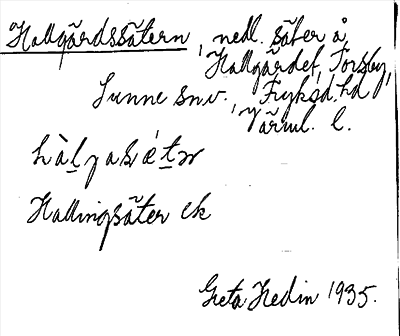 Hallgårdssätern, nedl. säter å
Hallgårdet, Torsby,
Sunne snv., Fryksd. hd
Värml. l.
Hallingsäter ek
Greta Hedin 1935.